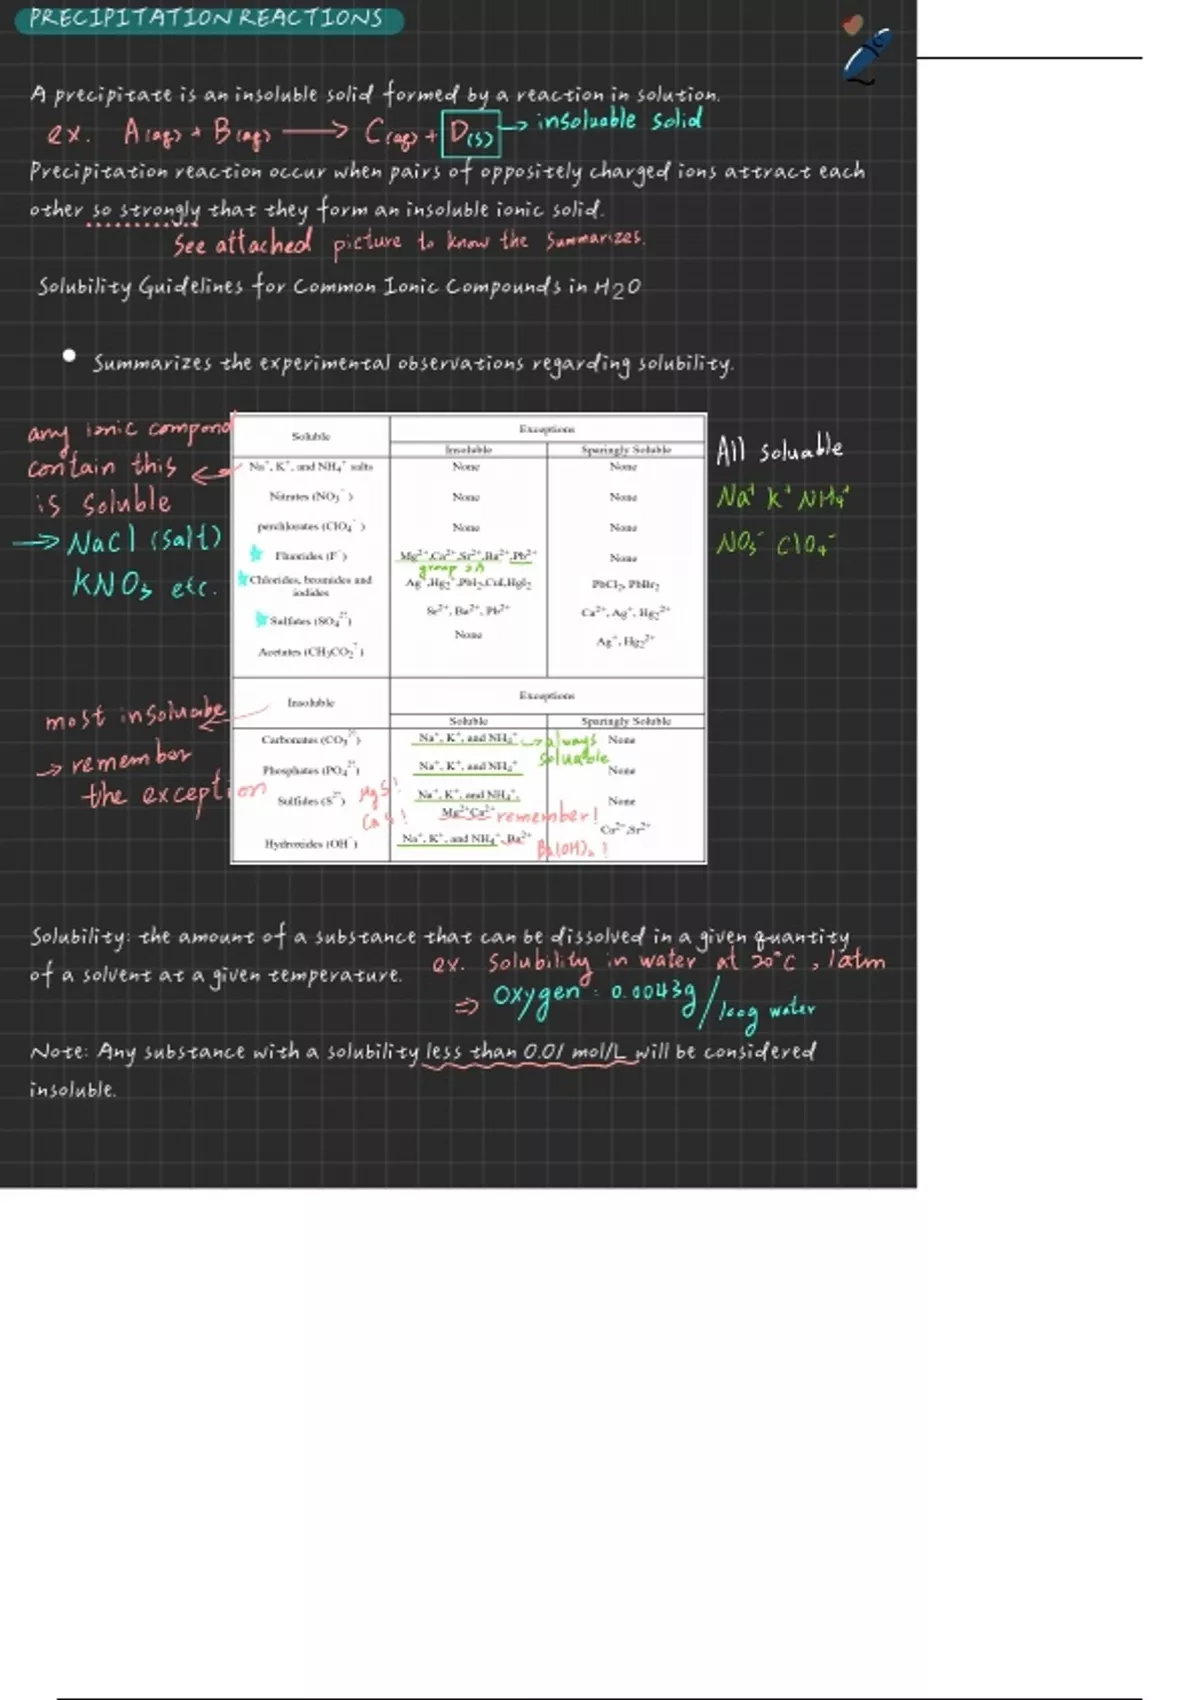 PRECIPITATION REACTIONS
A precipitate is an insoluble solid formed by a reaction in solution.
ex. A(aq) + B(aq) → C(aq) + D(s) → insoluable solid
Precipitation reaction occur when pairs of oppositely charged ions attract each
other so strongly that they form an insoluble ionic solid.
See attached picture to know the summarizes.
Solubility Guidelines for Common Ionic Compounds in H2O
• Summarizes the experimental observations regarding solubility.
any ionic compond
contain this
is soluble
→ NaCl (salt)
KNO₃ etc.
Soluble Exceptions
Insoluble Sparingly Soluble
Na⁺, K⁺, and NH₄⁺ salts None None
Nitrates (NO₃⁻) None None
perchlorates (ClO₄⁻) None None
Fluorides (F⁻) Mg²⁺,Ca²⁺,Sr²⁺,Ba²⁺,Pb²⁺ None
group 2A
Chlorides, bromides and iodides Ag⁺,Hg₂⁺,PbI₂,CuI,HgI₂ PbCl₂, PbBr₂
Sulfates (SO₄²⁻) Sr²⁺, Ba²⁺, Pb²⁺ Ca²⁺, Ag⁺, Hg₂²⁺
Acetates (CH₃CO₂⁻) None Ag⁺, Hg₂²⁺
All soluable
Na⁺ K⁺ NH₄⁺
NO₃⁻ ClO₄⁻
most insoluabe
→ remember
the exception
Insoluble Exceptions
Soluble Sparingly Soluble
Carbonates (CO₃²⁻) Na⁺, K⁺, and NH₄⁺ → always soluable None
Phosphates (PO₄²⁻) Na⁺, K⁺, and NH₄⁺ None
Sulfides (S²⁻) MgS! CaS! Na⁺, K⁺, and NH₄⁺, None
Mg²⁺Ca²⁺ remember!
Hydroxides (OH⁻) Na⁺, K⁺, and NH₄⁺,Ba²⁺ Ca²⁺,Sr²⁺
Ba(OH)₂ !
Solubility: the amount of a substance that can be dissolved in a given quantity
of a solvent at a given temperature. ex. Solubility in water at 20°C, 1atm
⇒ Oxygen: 0.0043g/100g water
Note: Any substance with a solubility less than 0.01 mol/L will be considered
insoluble.